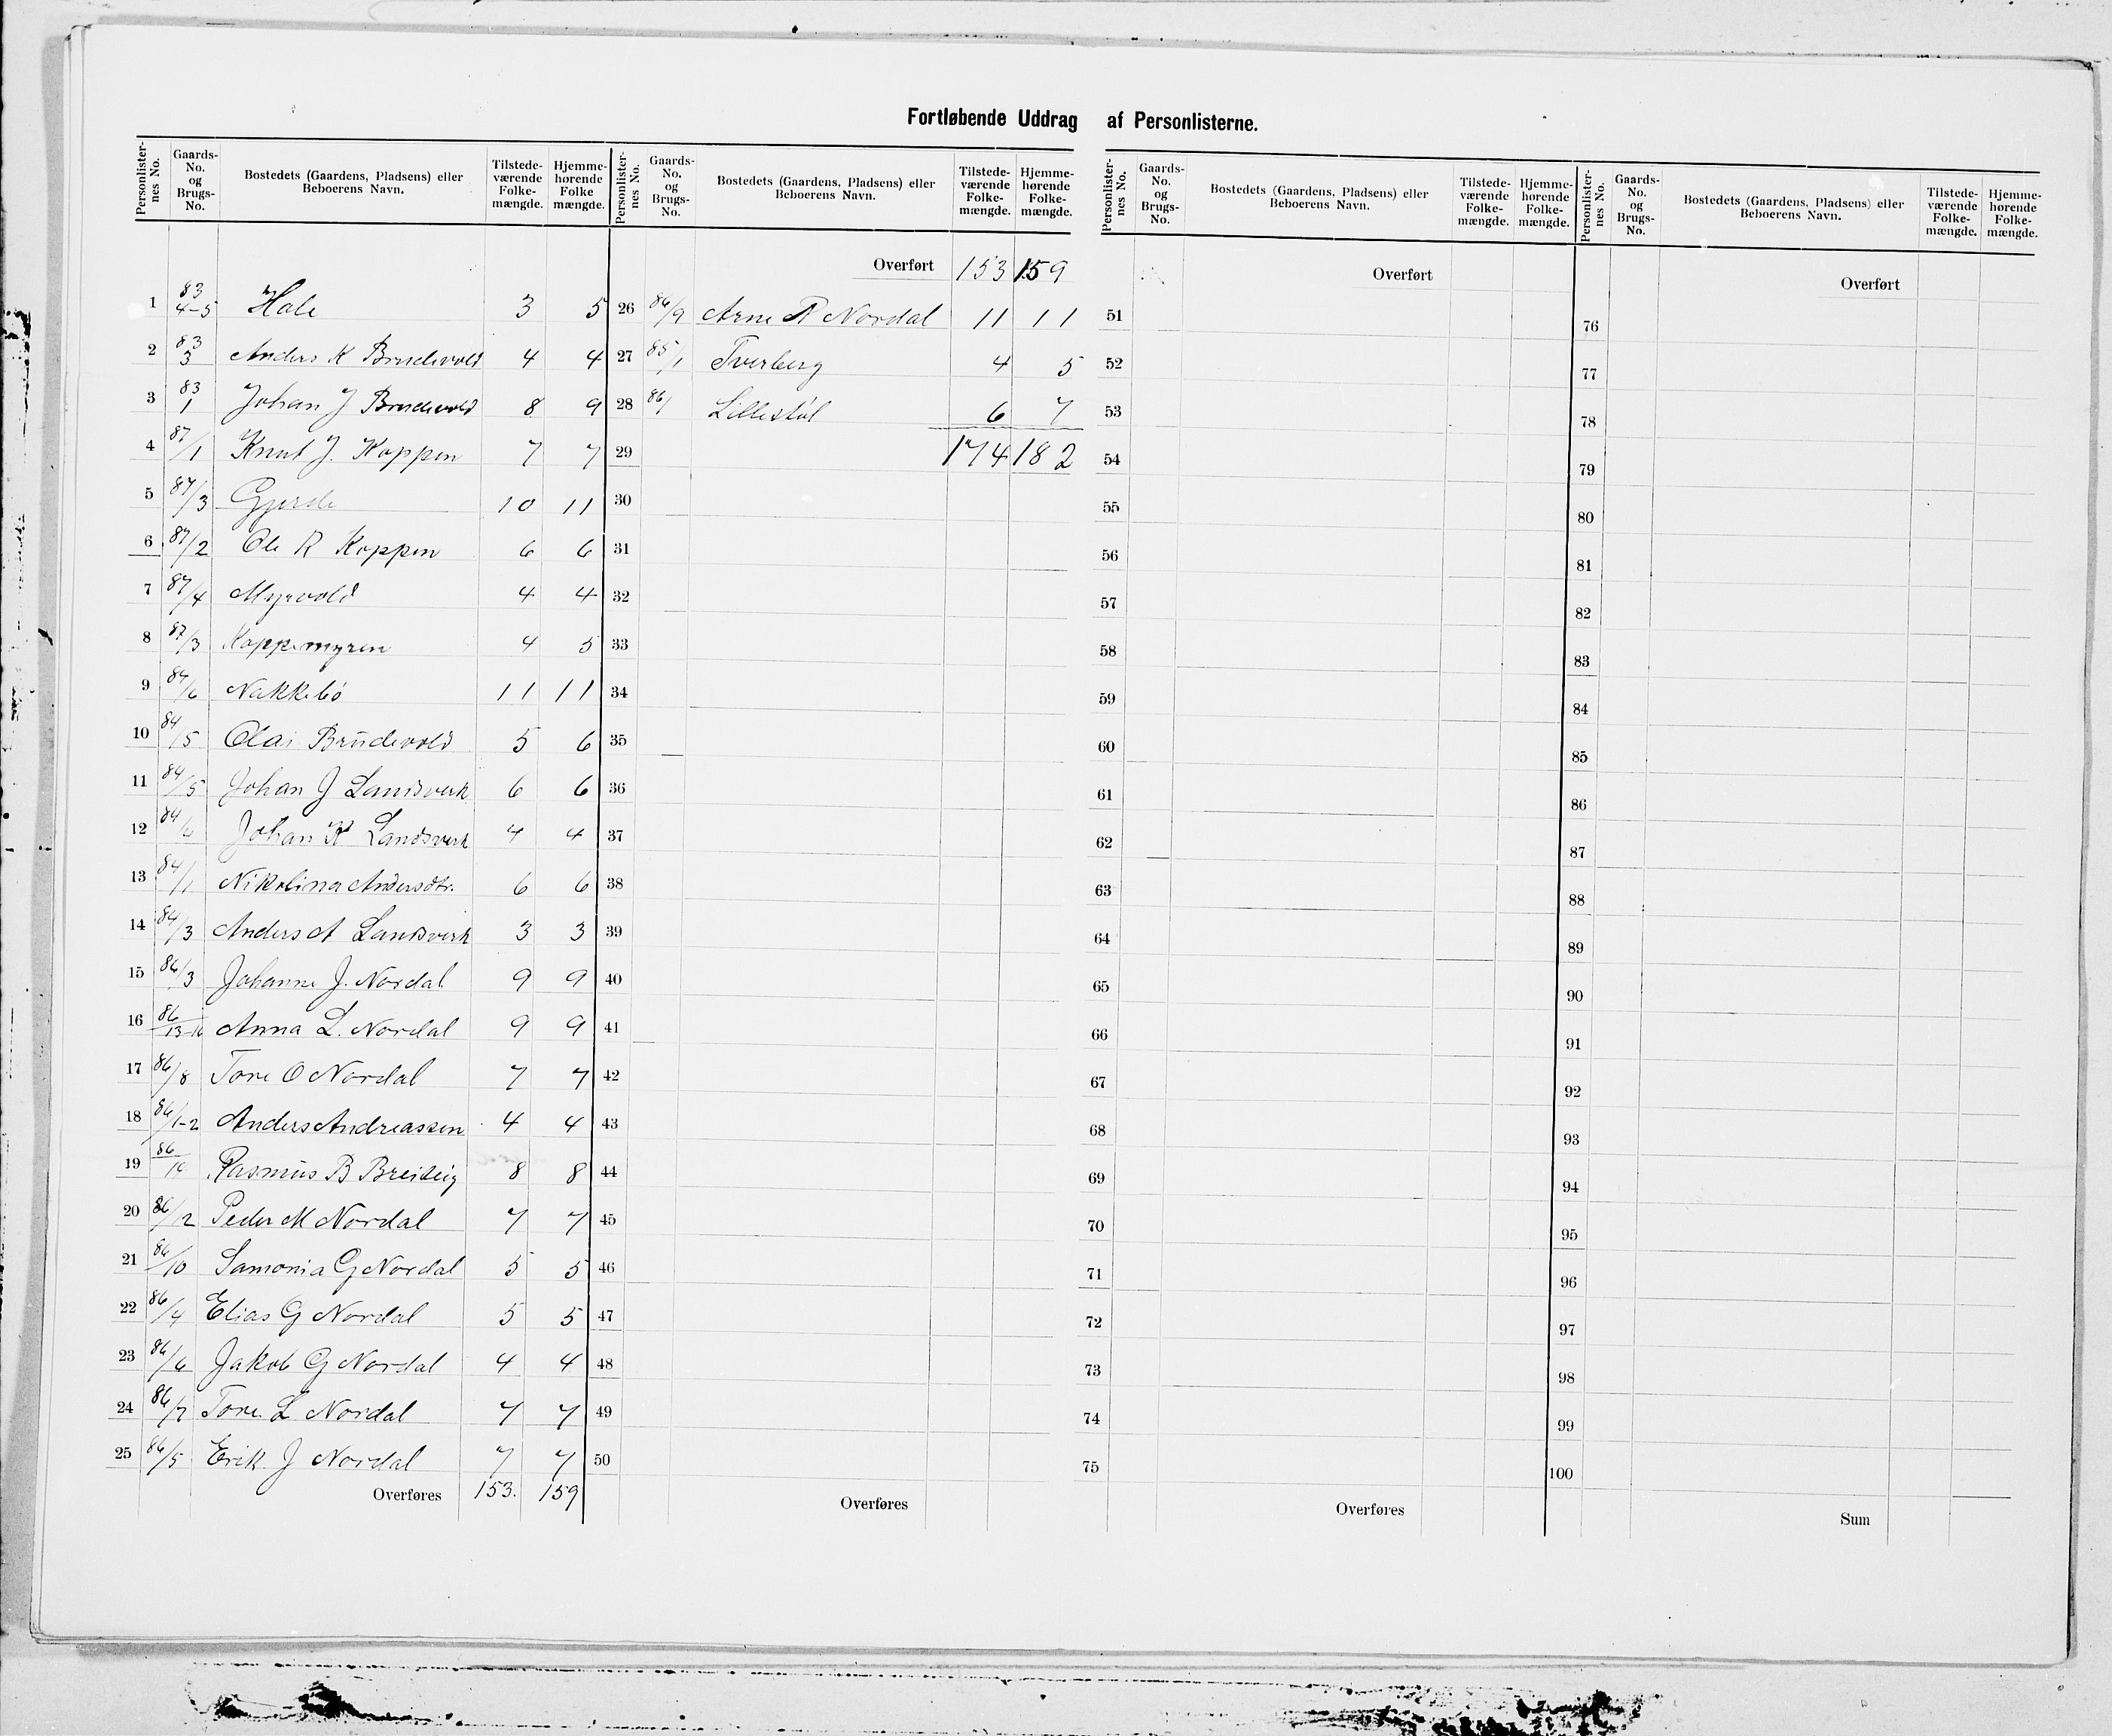 Fortløbende Uddrag af Personlisterne.
Personlisternes No. Gaards-No. og Brugs-No. Bostedets (Gaardens, Pladsens) eller Beboerens Navn. Tilstedeværende Folkemængde. Hjemmehørende Folkemængde.
1 83/4-5 Hole 3 5
2 83/3 Anders K Brudevold 4 4
3 83/1 Johan J Brudevold 8 9
4 87/1 Knut J. Koppen 7 7
5 87/3 Gjerde 10 11
6 87/2 Ole R Koppen 6 6
7 87/4 Myrvold 4 4
8 87/3 Koppemyren 4 5
9 84/6 Nakkebö 11 11
10 84/5 Olai Brudevold 5 6
11 84/5 Johan J Landsverk 6 6
12 84/4 Johan K Landsverk 4 4
13 84/1 Nikolina Andersdtr. 6 6
14 84/3 Anders A Landsverk 3 3
15 86/3 Johanne J. Nordal 9 9
16 86/13-16 Anna L. Nordal 9 9
17 86/8 Tore O Nordal 7 7
18 86/1-2 Anders Andreassen 4 4
19 86 Rasmus B Breiteig 8 8
20 86/12 Peder M Nordal 7 7
21 86/10 Samonia G Nordal 5 5
22 86/4 Elias G Nordal 5 5
23 86/6 Jakob G Nordal 4 4
24 86/7 Tore L Nordal 7 7
25 86/5 Erik J Nordal 7 7
Overføres 153. 159
Personlisternes No. Gaards-No. og Brugs-No. Bostedets (Gaardens, Pladsens) eller Beboerens Navn. Tilstedeværende Folkemængde. Hjemmehørende Folkemængde.
Overført 153 159
26 86/9 Arne R Nordal 11 11
27 85/1 Tverberg 4 5
28 86/ Lillestøl 6 7
29 174 182
30
31
32
33
34
35
36
37
38
39
40
41
42
43
44
45
46
47
48
49
50
Overføres
Personlisternes No. Gaards-No. og Brugs-No. Bostedets (Gaardens, Pladsens) eller Beboerens Navn. Tilstedeværende Folkemængde. Hjemmehørende Folkemængde.
Overført
51
52
53
54
55
56
57
58
59
60
61
62
63
64
65
66
67
68
69
70
71
72
73
74
75
Overføres
Personlisternes No. Gaards-No. og Brugs-No. Bostedets (Gaardens, Pladsens) eller Beboerens Navn. Tilstedeværende Folkemængde. Hjemmehørende Folkemængde.
Overført
76
77
78
79
80
81
82
83
84
85
86
87
88
89
90
91
92
93
94
95
96
97
98
99
100
Sum